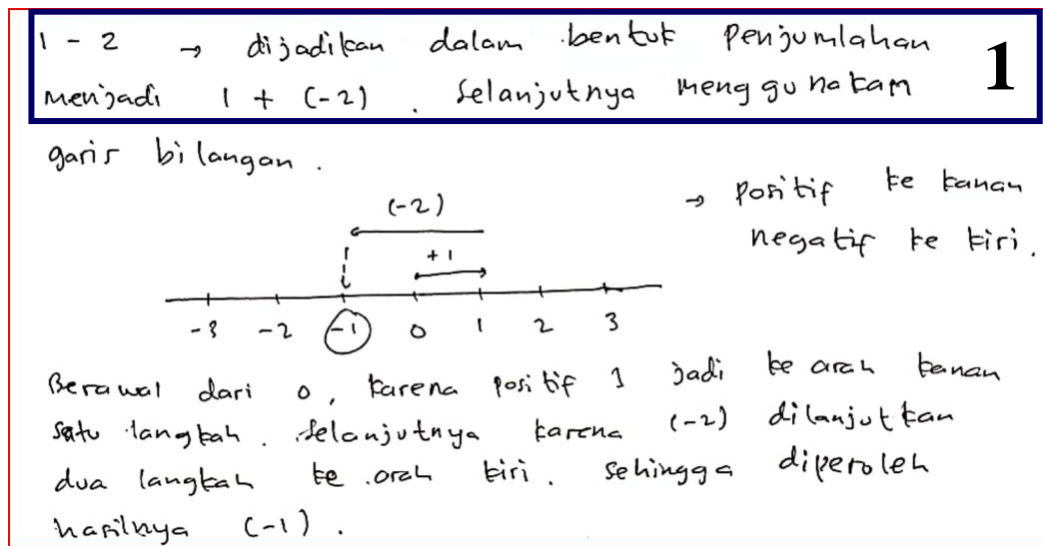 1 - 2 → dijadikan dalam bentuk penjumlahan
menjadi 1 + (-2). Selanjutnya menggunakan
1
garis bilangan.
→ positif ke kanan
negatif ke kiri.
(-2)
+1
-3 -2 -1 0 1 2 3
Berawal dari 0, karena positif 1 jadi ke arah kanan
satu langkah. Selanjutnya karena (-2) dilanjutkan
dua langkah ke arah kiri. Sehingga diperoleh
hasilnya (-1).